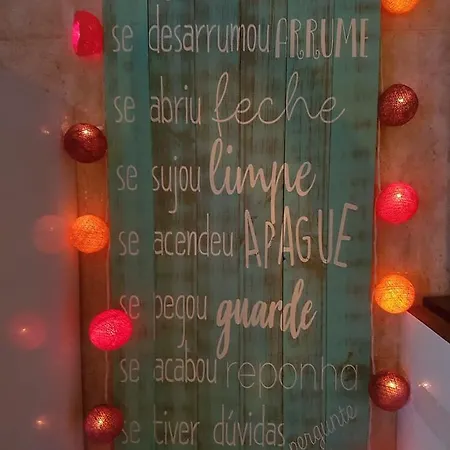 se desarrumou ARRUME
se abriu feche
se sujou limpe
se acendeu APAGUE
se pegou guarde
se acabou reponhá
se tiver dúvidas pergunte